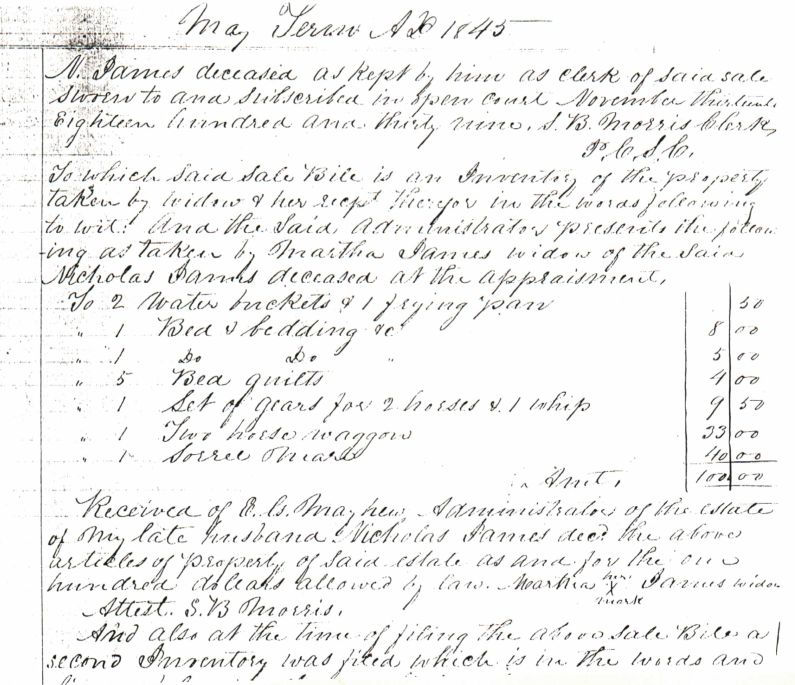 May Term AD 1845
N. James deceased as kept by him as clerk of said sale
sworn to and subscribed in open court November thirteenth
Eighteen hundred and thirty nine. S. B. Morris Clerk,
P. C. S. C.
To which said Sale Bile is an Inventory of the Property
taken by widow & her recpt therefor in the words following
to wit: And the Said Administrator presents the follow
-ing as taken by Martha James widow of the Said
Nicholas James deceased at the appraisment,
To 2 Water buckets & 1 frying pan 50
" 1 Bed & bedding &c 8 00
" 1 Do Do " 5 00
" 5 Bed quilts 4 00
" 1 Set of gears for 2 horses & 1 whip 9 50
" 1 Two horse waggon 33 00
" 1 Sorrel Mare 40 00
Amt, 100 00
Received of E. G. Mayhew Administrator of the estate
of My late husband Nicholas James decd the above
articles of Property of Said estate as and for the one
hundred dollars allowed by law. Martha her X mark James widow
Attest. S. B Morris,
And also at the time of filing the above Sale Bile a
second Inventory was filed which is in the words and